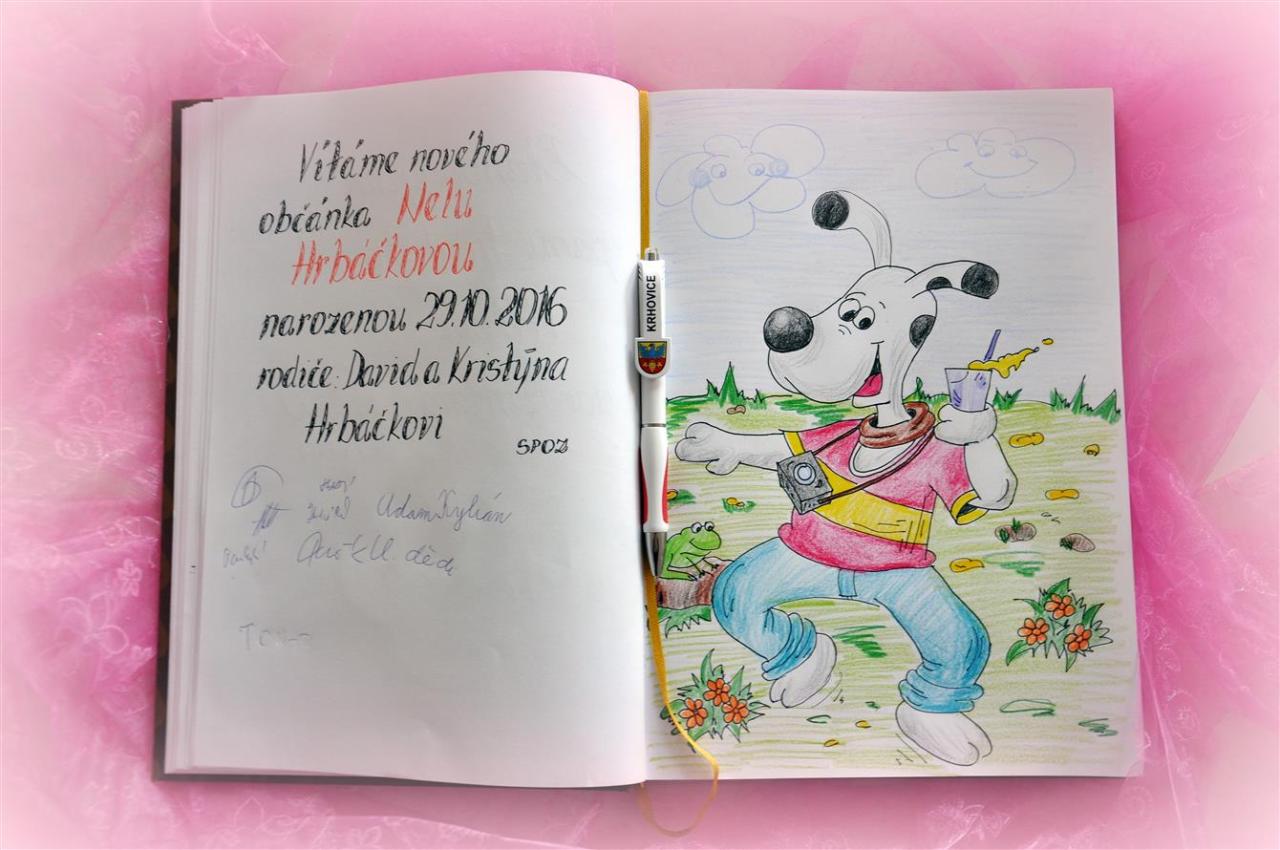 Vítáme nového
občánka Nelu
Hrbáčkovou
narozenou 29.10.2016
rodiče: David a Kristýna
Hrbáčkovi
SPOZ
Adam Kylián
děda
KRHOVICE